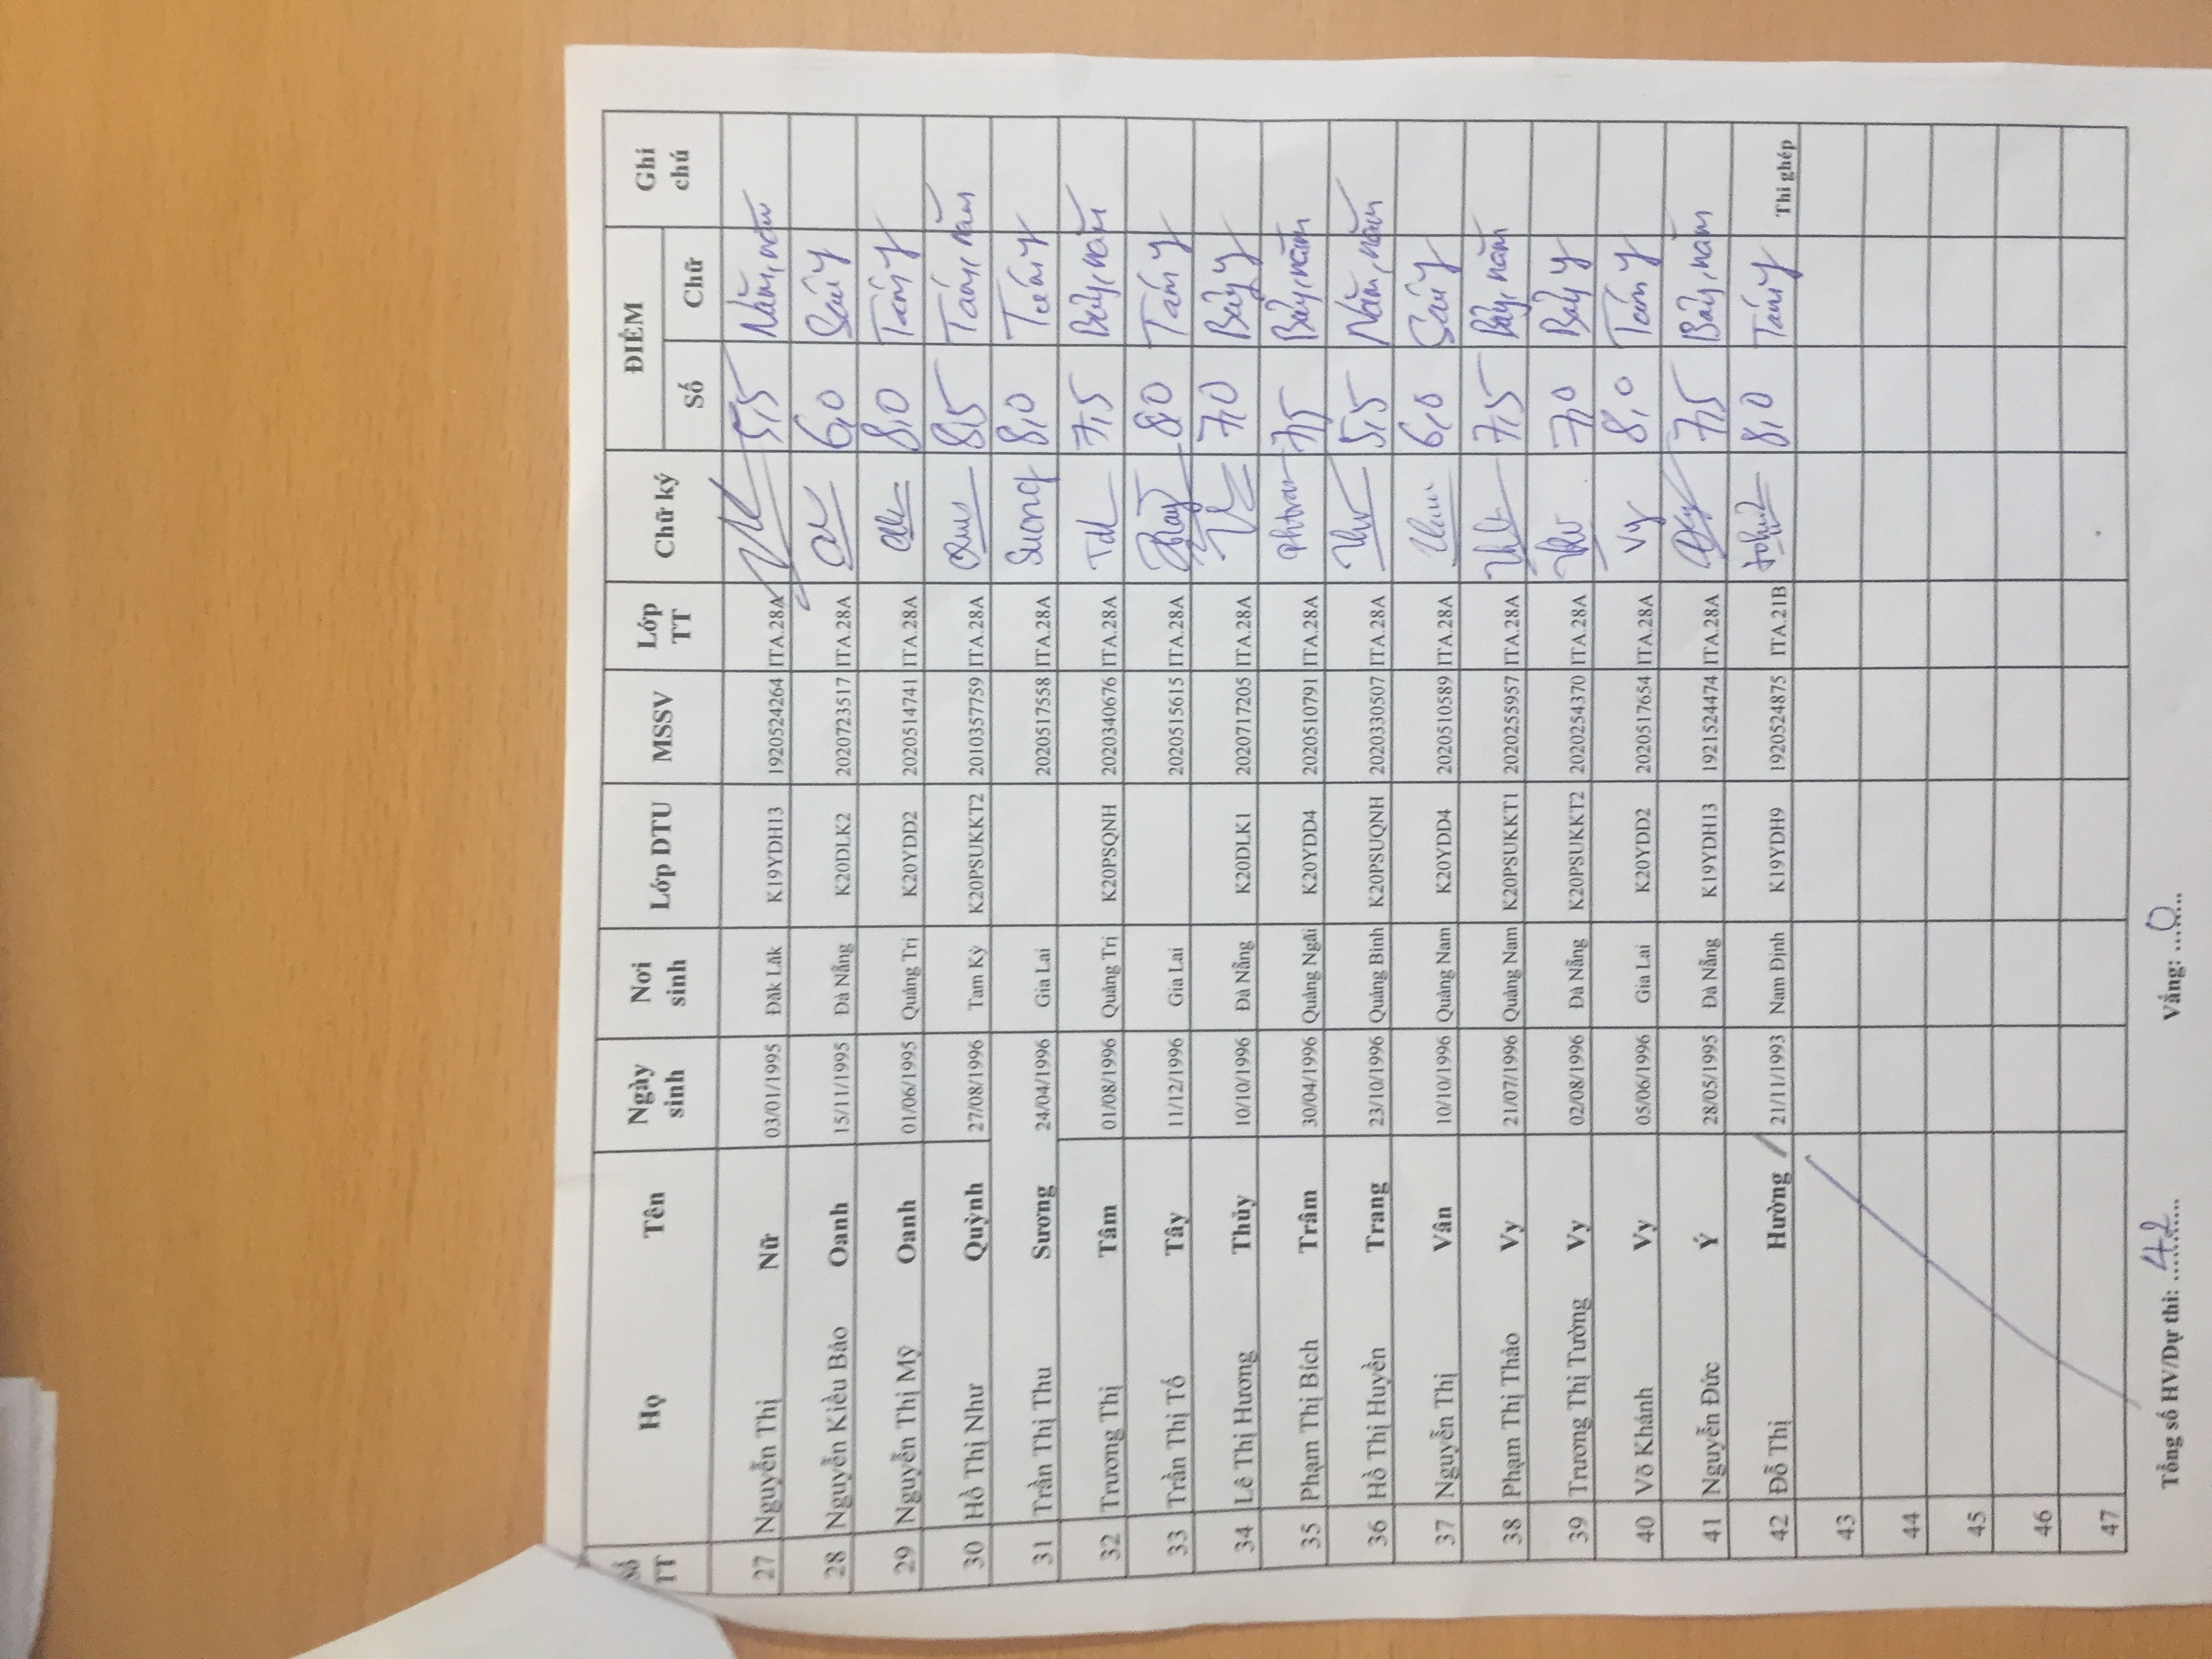 Số TT Họ Tên Ngày sinh Nơi sinh Lớp DTU MSSV Lớp TT Chữ ký ĐIỂM Ghi chú
Số Chữ
27 Nguyễn Thị Nữ 03/01/1995 Đăk Lăk K19YDH13 1920524264 ITA.28A 5,5 Năm, năm
28 Nguyễn Kiều Bảo Oanh 15/11/1995 Đà Nẵng K20DLK2 2020723517 ITA.28A 6,0 Sáu y
29 Nguyễn Thị Mỹ Oanh 01/06/1995 Quảng Trị K20YDD2 2020514741 ITA.28A 8,0 Tám y
30 Hồ Thị Như Quỳnh 27/08/1996 Tam Kỳ K20PSUKKT2 2010357759 ITA.28A 8,5 Tám, năm
31 Trần Thị Thu Sương 24/04/1996 Gia Lai 2020517558 ITA.28A Sương 8,0 Tám y
32 Trương Thị Tâm 01/08/1996 Quảng Trị K20PSQNH 2020340676 ITA.28A 7,5 Bảy, năm
33 Trần Thị Tố Tây 11/12/1996 Gia Lai 2020515615 ITA.28A 8,0 Tám y
34 Lê Thị Hương Thủy 10/10/1996 Đà Nẵng K20DLK1 2020717205 ITA.28A 7,0 Bảy y
35 Phạm Thị Bích Trâm 30/04/1996 Quảng Ngãi K20YDD4 2020510791 ITA.28A 7,5 Bảy, năm
36 Hồ Thị Huyền Trang 23/10/1996 Quảng Bình K20PSUQNH 2020330507 ITA.28A 5,5 Năm, năm
37 Nguyễn Thị Vân 10/10/1996 Quảng Nam K20YDD4 2020510589 ITA.28A 6,0 Sáu y
38 Phạm Thị Thảo Vy 21/07/1996 Quảng Nam K20PSUKKT1 2020255957 ITA.28A 7,5 Bảy, năm
39 Trương Thị Tường Vy 02/08/1996 Đà Nẵng K20PSUKKT2 2020254370 ITA.28A 7,0 Bảy y
40 Võ Khánh Vy 05/06/1996 Gia Lai K20YDD2 2020517654 ITA.28A Vy 8,0 Tám y
41 Nguyễn Đức Ý 28/05/1995 Đà Nẵng K19YDH13 1921524474 ITA.28A 7,5 Bảy, năm
42 Đỗ Thị Hường 21/11/1993 Nam Định K19YDH9 1920524875 ITA.21B 8,0 Tám y Thi ghép
43
44
45
46
47
Tổng số HV/Dự thi: ...42... Vắng: ...0...